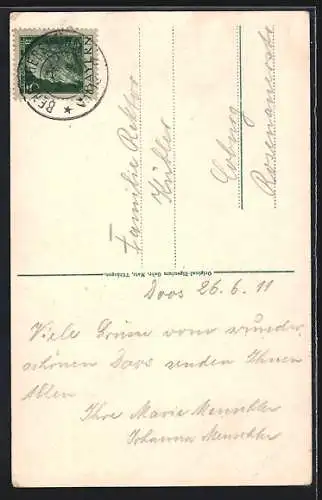 BAYERN
Familie Rektor
Hübler
Coburg
Original-Eigentum Gebr. Metz, Tübingen.
Doos 26.6.11
Viele Grüsse vom wunder
schönen Doos senden Ihnen
Allen
Ihre Marie Menschler
Johanna Menschler